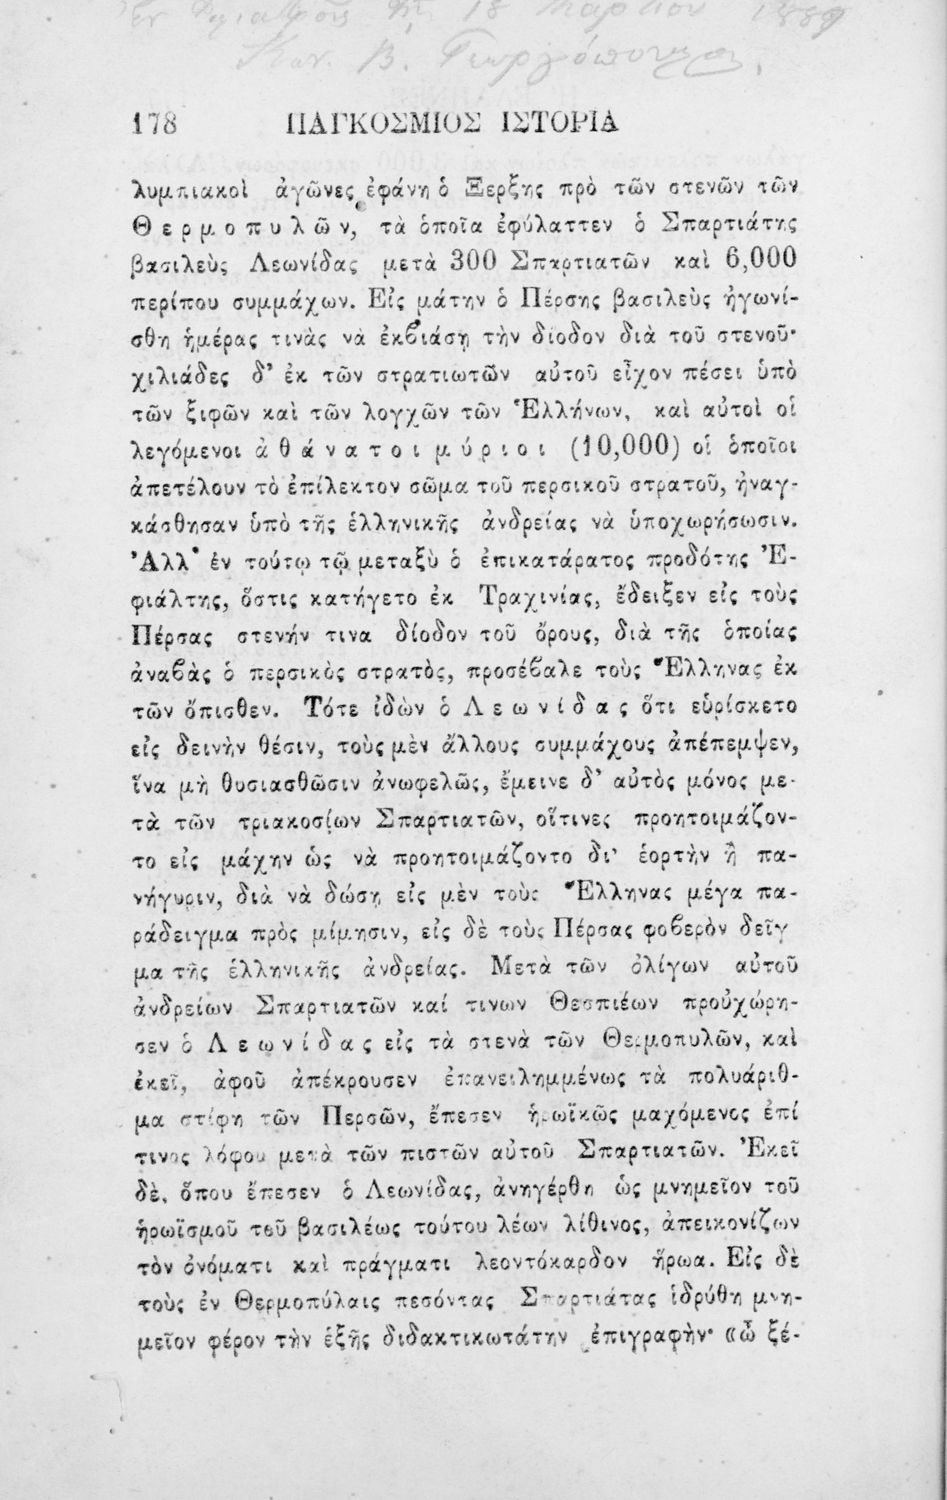 Ἐν Φιλιατροῖς τῇ 18 Μαρτίου 1889
Κων. Β. Γεωργόπουλος.
178 ΠΑΓΚΟΣΜΙΟΣ ΙΣΤΟΡΙΑ
λυμπιακοὶ ἀγῶνες ἐφάνη ὁ Ξερξης πρὸ τῶν στενῶν τῶν
Θερμοπυλῶν, τὰ ὁποῖα ἐφύλαττεν ὁ Σπαρτιάτης
βασιλεὺς Λεωνίδας μετὰ 300 Σπαρτιατῶν καὶ 6,000
περίπου συμμάχων. Εἰς μάτην ὁ Πέρσης βασιλεὺς ἠγωνί-
σθη ἡμέρας τινὰς νὰ ἐκβιάσῃ τὴν δίοδον διὰ τοῦ στενοῦ·
χιλιάδες δ’ ἐκ τῶν στρατιωτῶν αὐτοῦ εἶχον πέσει ὑπὸ
τῶν ξιφῶν καὶ τῶν λογχῶν τῶν Ἑλλήνων, καὶ αὐτοὶ οἱ
λεγόμενοι ἀθάνατοι μύριοι (10,000) οἱ ὁποῖοι
ἀπετέλουν τὸ ἐπίλεκτον σῶμα τοῦ περσικοῦ στρατοῦ, ἠναγ-
κάσθησαν ὑπὸ τῆς ἑλληνικῆς ἀνδρείας νὰ ὑποχωρήσωσιν.
Ἀλλ’ ἐν τούτῳ τῷ μεταξὺ ὁ ἐπικατάρατος προδότης Ἐ-
φιάλτης, ὅστις κατήγετο ἐκ Τραχινίας, ἔδειξεν εἰς τοὺς
Πέρσας στενήν τινα δίοδον τοῦ ὄρους, διὰ τῆς ὁποίας
ἀναβὰς ὁ περσικὸς στρατὸς, προσέβαλε τοὺς Ἕλληνας ἐκ
τῶν ὄπισθεν. Τότε ἰδὼν ὁ Λεωνίδας ὅτι εὑρίσκετο
εἰς δεινὴν θέσιν, τοὺς μὲν ἄλλους συμμάχους ἀπέπεμψεν,
ἵνα μὴ θυσιασθῶσιν ἀνωφελῶς, ἔμεινε δ’ αὐτὸς μόνος με-
τὰ τῶν τριακοσίων Σπαρτιατῶν, οἵτινες προητοιμάζον-
το εἰς μάχην ὡς νὰ προητοιμάζοντο δι’ ἑορτὴν ἢ πα-
νήγυριν, διὰ νὰ δώσῃ εἰς μὲν τοὺς Ἕλληνας μέγα πα-
ράδειγμα πρὸς μίμησιν, εἰς δὲ τοὺς Πέρσας φοβερὸν δεῖγ
μα τῆς ἑλληνικῆς ἀνδρείας. Μετὰ τῶν ὀλίγων αὐτοῦ
ἀνδρείων Σπαρτιατῶν καί τινων Θεσπιέων προὐχώρη-
σεν ὁ Λεωνίδας εἰς τὰ στενὰ τῶν Θερμοπυλῶν, καὶ
ἐκεῖ, ἀφοῦ ἀπέκρουσεν ἐπανειλημμένως τὰ πολυάριθ-
μα στίφη τῶν Περσῶν, ἔπεσεν ἡρωϊκῶς μαχόμενος ἐπί
τινος λόφου μετὰ τῶν πιστῶν αὐτοῦ Σπαρτιατῶν. Ἐκεῖ
δὲ, ὅπου ἔπεσεν ὁ Λεωνίδας, ἀνηγέρθη ὡς μνημεῖον τοῦ
ἡρωϊσμοῦ τοῦ βασιλέως τούτου λέων λίθινος, ἀπεικονίζων
τὸν ὀνόματι καὶ πράγματι λεοντόκαρδον ἥρωα. Εἰς δὲ
τοὺς ἐν Θερμοπύλαις πεσόντας Σπαρτιάτας ἱδρύθη μνη-
μεῖον φέρον τὴν ἑξῆς διδακτικωτάτην ἐπιγραφὴν· «ὦ ξέ-